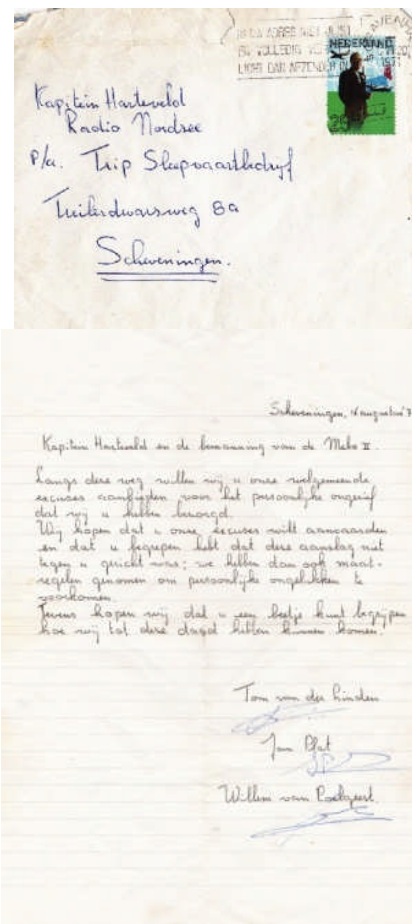 NEDERLAND
25
Kapitein Harteveld
Radio Nordzee
p/a. Trip Sleepvaartbedrijf
Treilerdwarsweg 8a
Scheveningen.
Scheveningen, 16 augustus
Kapitein Harteveld en de bemanning van de Mebo II.
Langs deze weg willen wij u onze welgemeende
excuses aanbieden voor het persoonlijke ongerief
dat wij u hebben bezorgd.
Wij hopen dat u onze excuses wilt aanvaarden
en dat u begrepen hebt dat deze aanslag niet
tegen u gericht was; we hebben dan ook maat-
regelen genomen om persoonlijke ongelukken te
voorkomen.
Tevens hopen wij dat u een beetje kunt begrijpen
hoe wij tot deze daad hebben kunnen komen.
Tom van der Linden
Jan Plat
Willem van